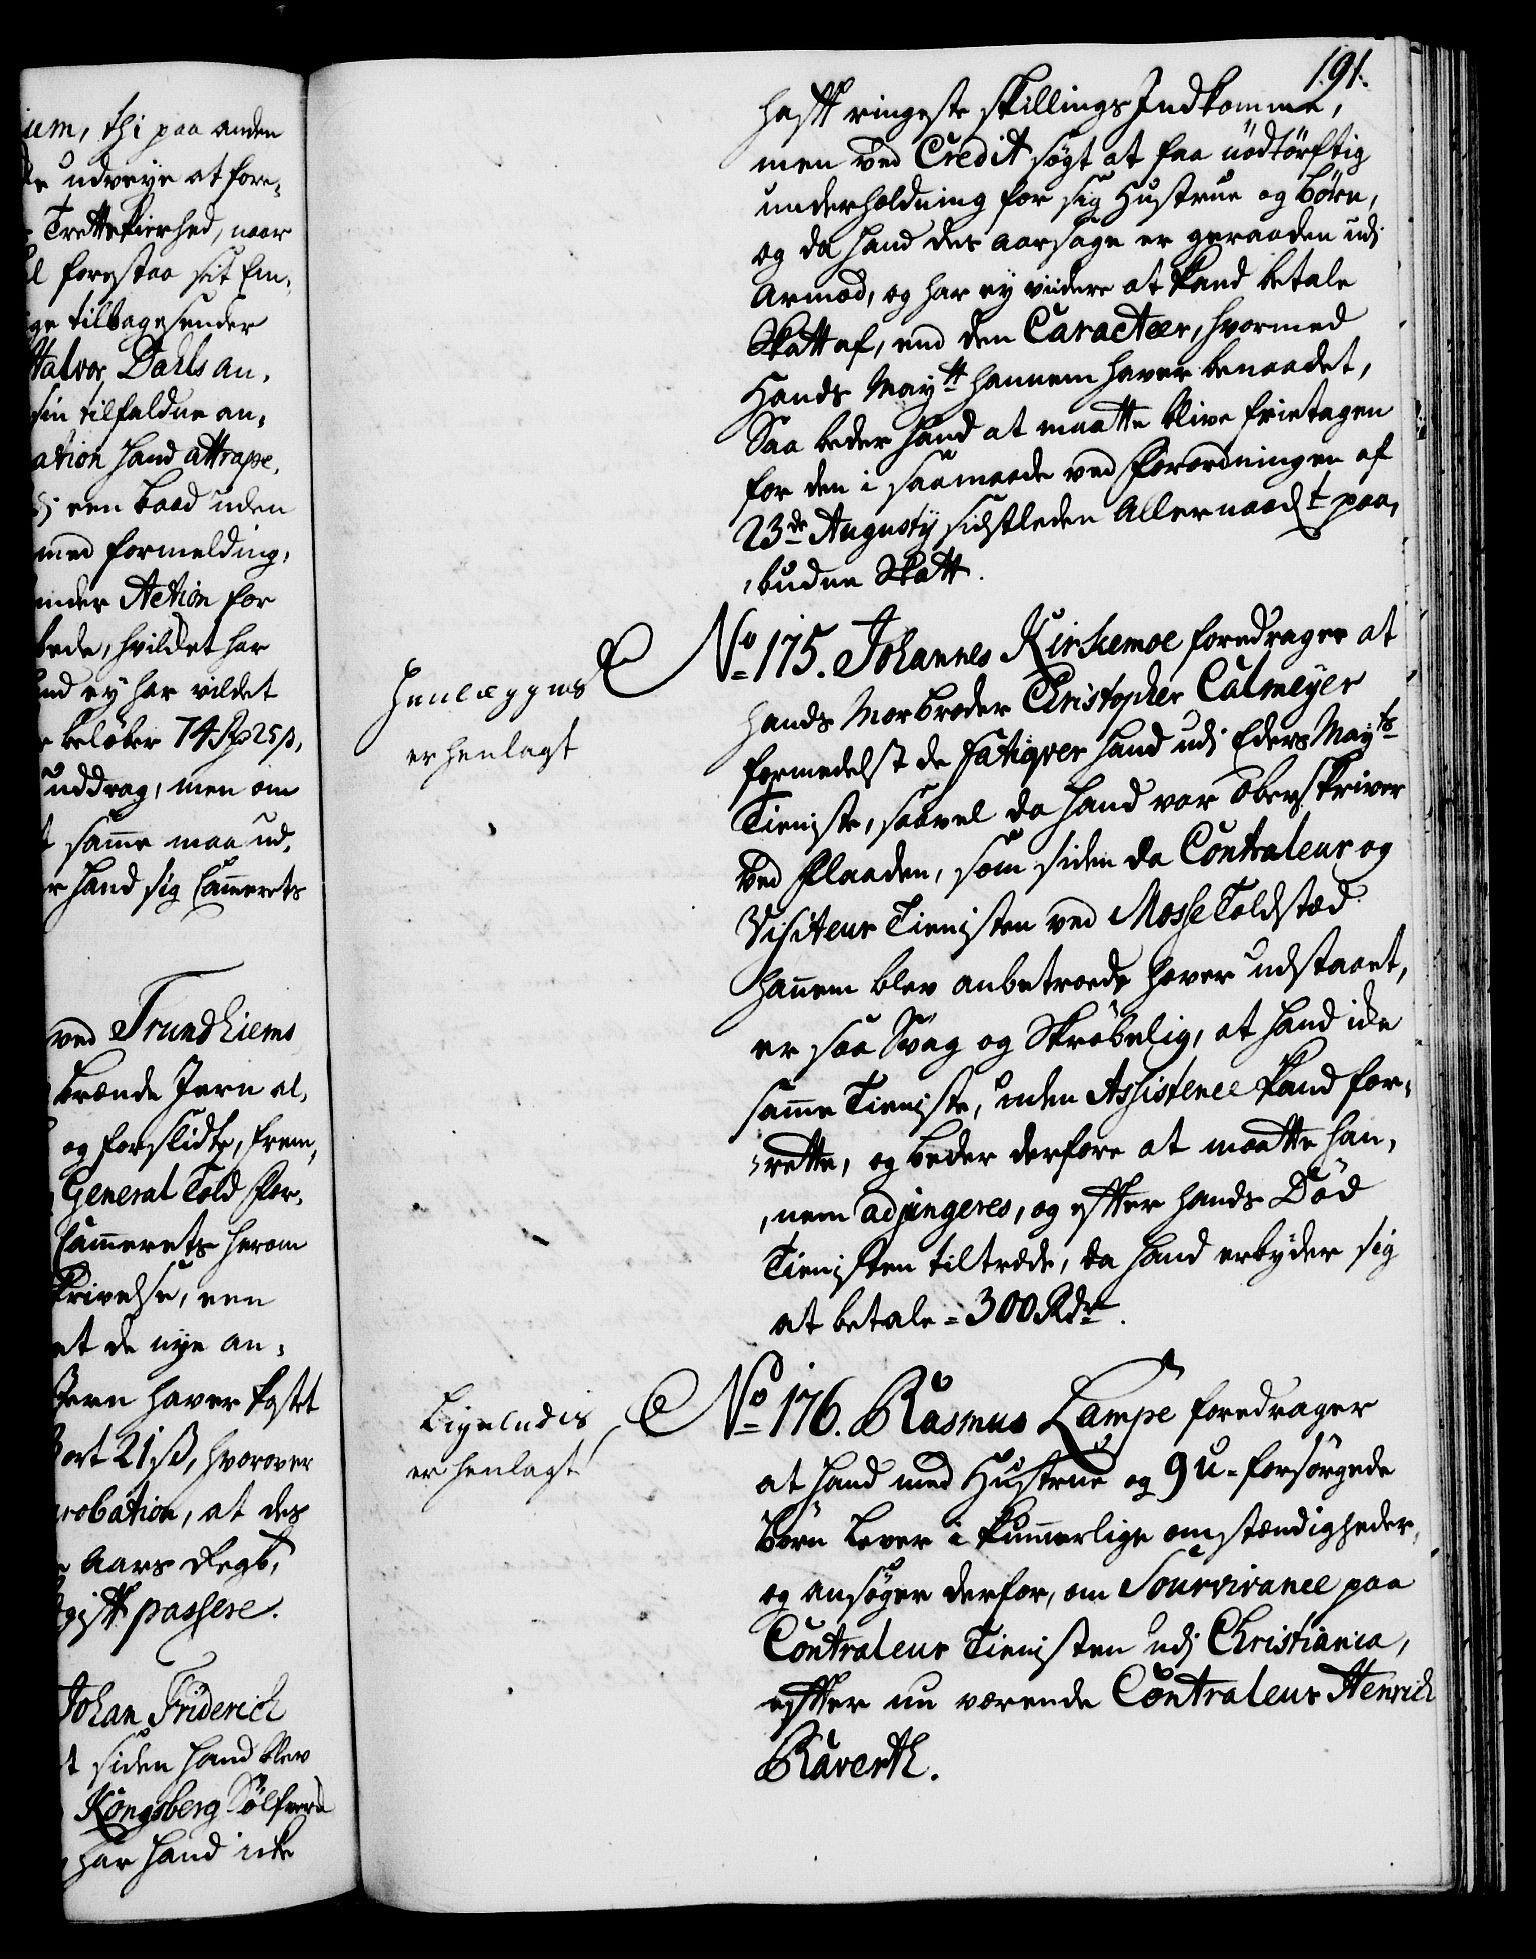 ium, thi paa anden
udveye at fore-
Trettekierhed, naar
forestaa sit Em-
tilbagesender
Halvor Dahls an-
sin tilfaldne an-
ation hand attrape-
een baad uden
med formelding,
under Action for
hvildet har
ey har vildet
beløber 74 Rdr 25 s,
uddrag, men om
samme maa ud-
hand sig Cammerets
ved Trundhiems
brænde Jern al-
og forslidte, frem-
General Told For-
Cammerets herom
skrivelse, een
et de nye an-
Jern haver kostet
ort 21 ß, hvorover
robation, at des
Aars Regb.
passere.
Johan Friderich
siden hand blev
Kongsberg Sølfverk
har hand icke
191.
hafft ringeste skillings Indkomme,
men ved Credit søgt at faa nødtørftig
underholdning for sig Hustrue og børn,
og da hand des aarsage er geraaden udi
Armod, og har ey viidere at kand betale
Skatt af, end den Caracteer, hvormed
Hands Maytt hannem haver benaadet,
Saa beder hand at maatte blive frietagen
for den i saamaade ved Forordningen af
23de Augusty sidstleden Allernaadt paa-
budne Skatt.
Henlegges
er henlagt
No 175. Johannes Kirkemoe foredrager at
hands Morbroder Christopher Calmeyer
formedelst de Fatiqver hand udi Eders Mayts
Tieniste, saavel da hand var Oberskriver
ved Flaaden, som siden da Contraleur og
Visiteur Tienisten ved Mosse Toldstæd
hannem blev anbetroede haver udstaaet,
er saa Svag og Skrøbelig, at hand icke
samme Tieniste, uden Assistence kand for-
rette, og beder derfore at maatte han-
nem adjungeres, og effter hands Død
Tienisten tiltræde, da hand erbyder sig
at betale = 300 Rdr.
Ligeledis
er henlagt
No 176. Rasmus Lampe foredrager
at hand med Hustrue og 9 u-forsørgede
børn lever i kummerlige omstændigheder,
og ansøger derfor, om Sourvivance paa
Contraleur Tienisten udi Christiania,
effter nu værende Contraleur Henrich
Raverth.